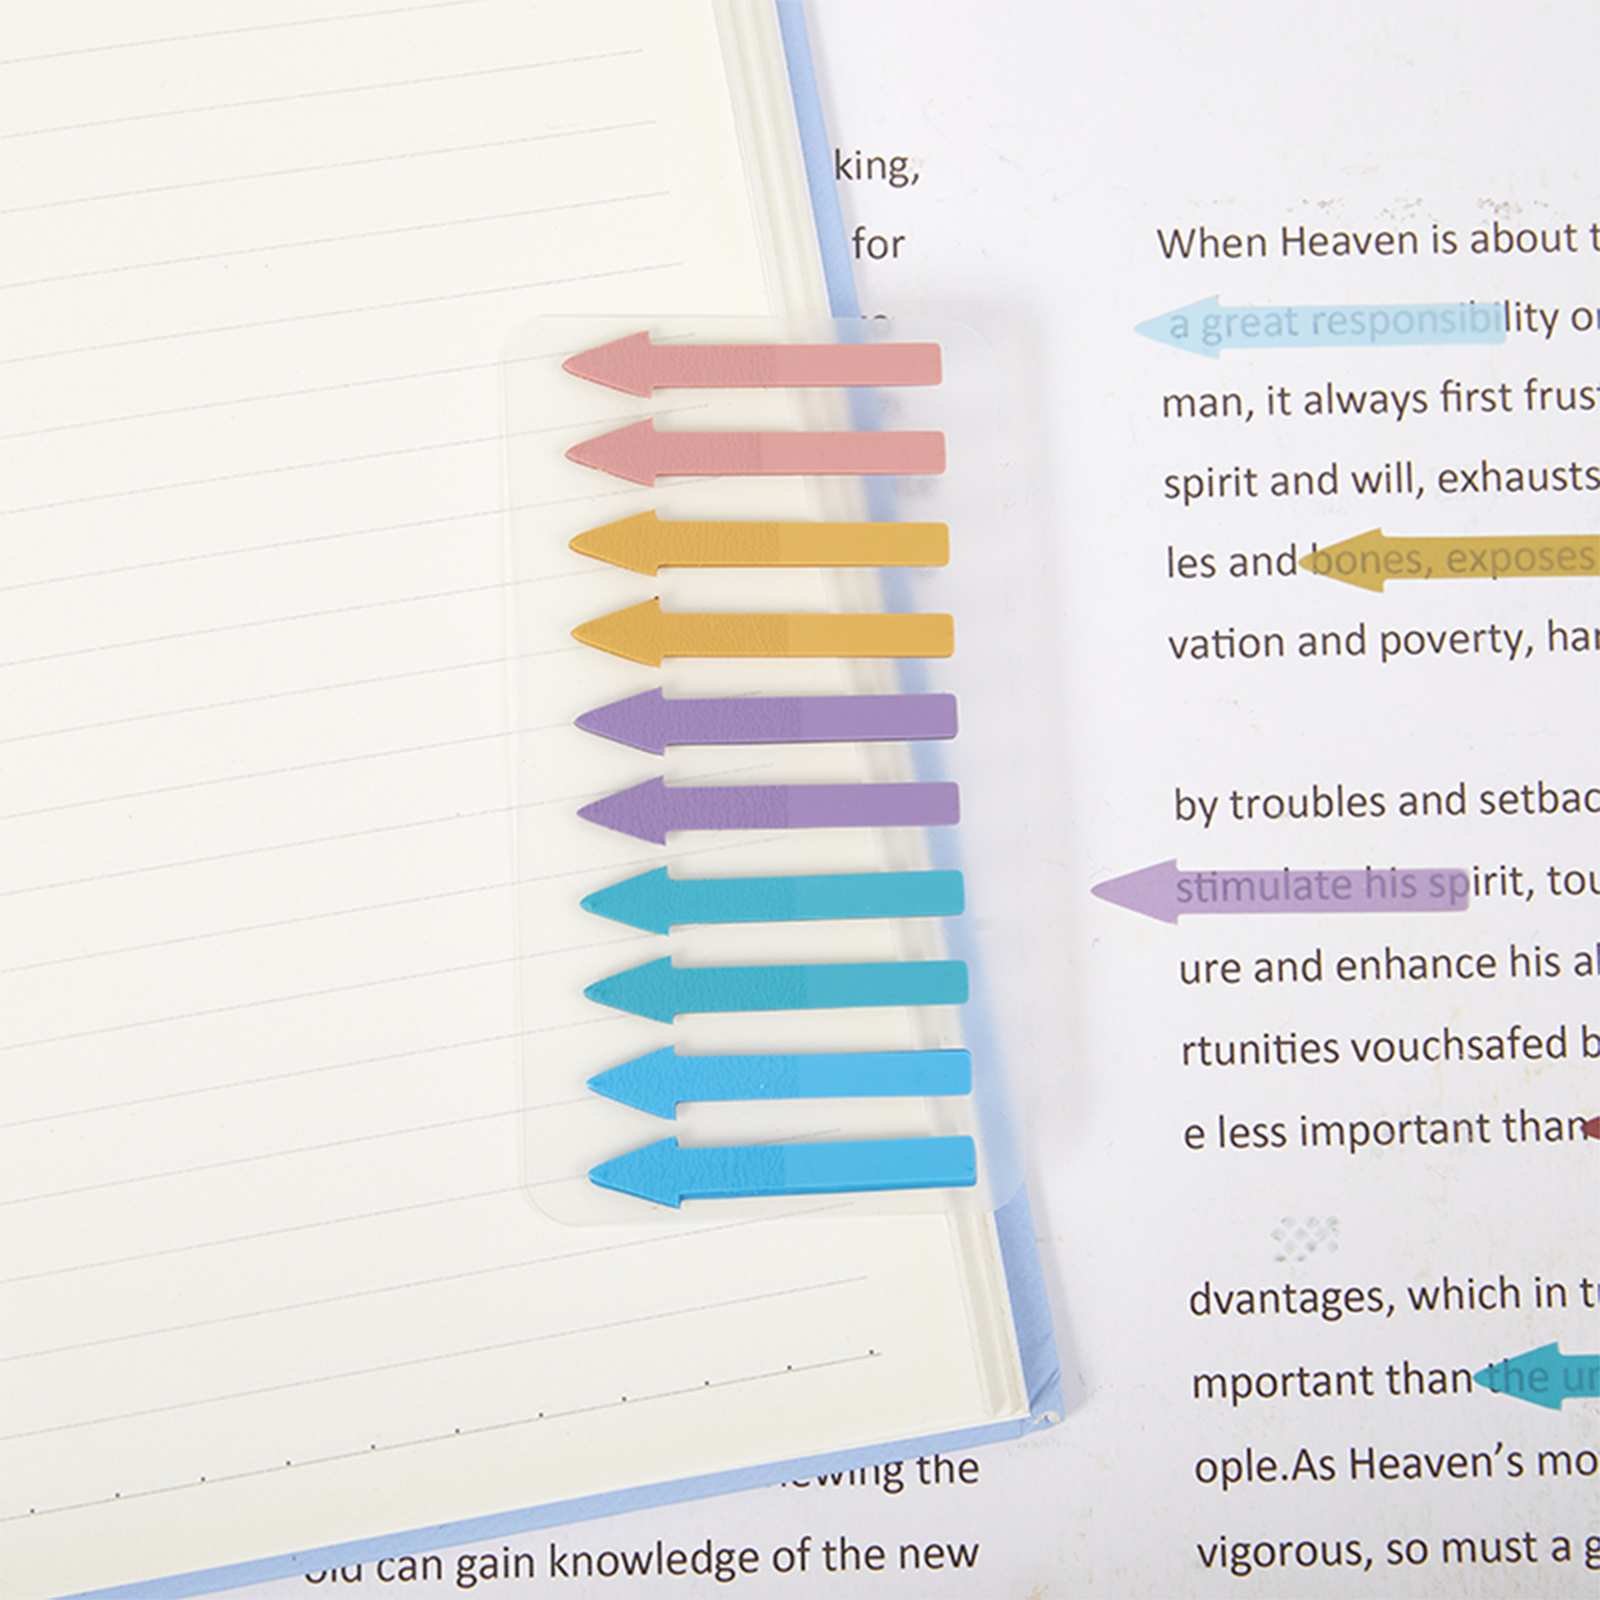 king,
for
the
can gain knowledge of the new
When Heaven is about
a great responsibility
man, it always first
spirit and will, exhausts
les and bones, exposes
vation and poverty,
by troubles and
stimulate his spirit,
ure and enhance his
rtunities vouchsafed
e less important than
dvantages, which in
mportant than the
ople.As Heaven's
vigorous, so must a